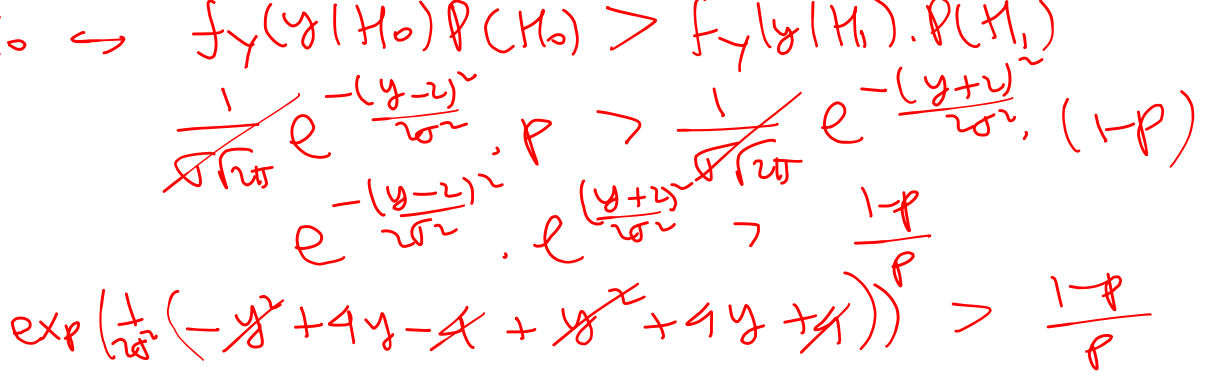 ₀ ↪ f_Y(y|H₀)P(H₀) > f_Y(y|H₁).P(H₁)
1/(σ√2π) e^(-(y-2)²/2σ²) . p > 1/(σ√2π) e^(-(y+2)²/2σ²) . (1-p)
e^(-(y-2)²/2σ²) . e^((y+2)²/2σ²) > (1-p)/p
exp(1/2σ² (-y²+4y-4+y²+4y+4)) > (1-p)/p